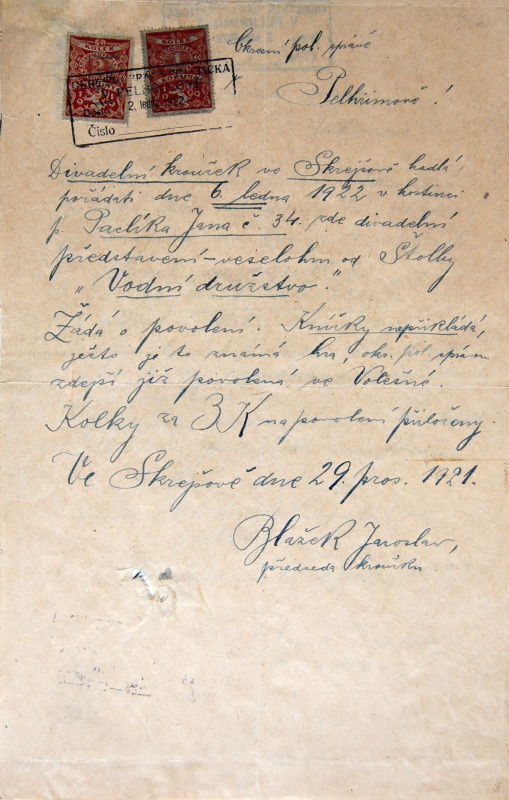 Okresní pol. správě
Pelhřimově!
ČR
KOLEK
ČR
KOLEK
1
2. led
Číslo
Divadelní kroužek ve Skrejšově hodlá
pořádati dne 6. ledna 1922 v hostinci
p. Pavlíka Jana č. 34. zde divadelní
představení – veselohru od Štolby
„Vodní družstvo".
Žádá o povolení. Knížky nepřikládá,
ježto je to známá hra, okr. pol. správou
zdejší již povolená ve Volešné.
Kolky za 3 K na povolení přiloženy.
Ve Skrejšově dne 29. pros. 1921.
Blažek Jaroslav,
předseda kroužku.